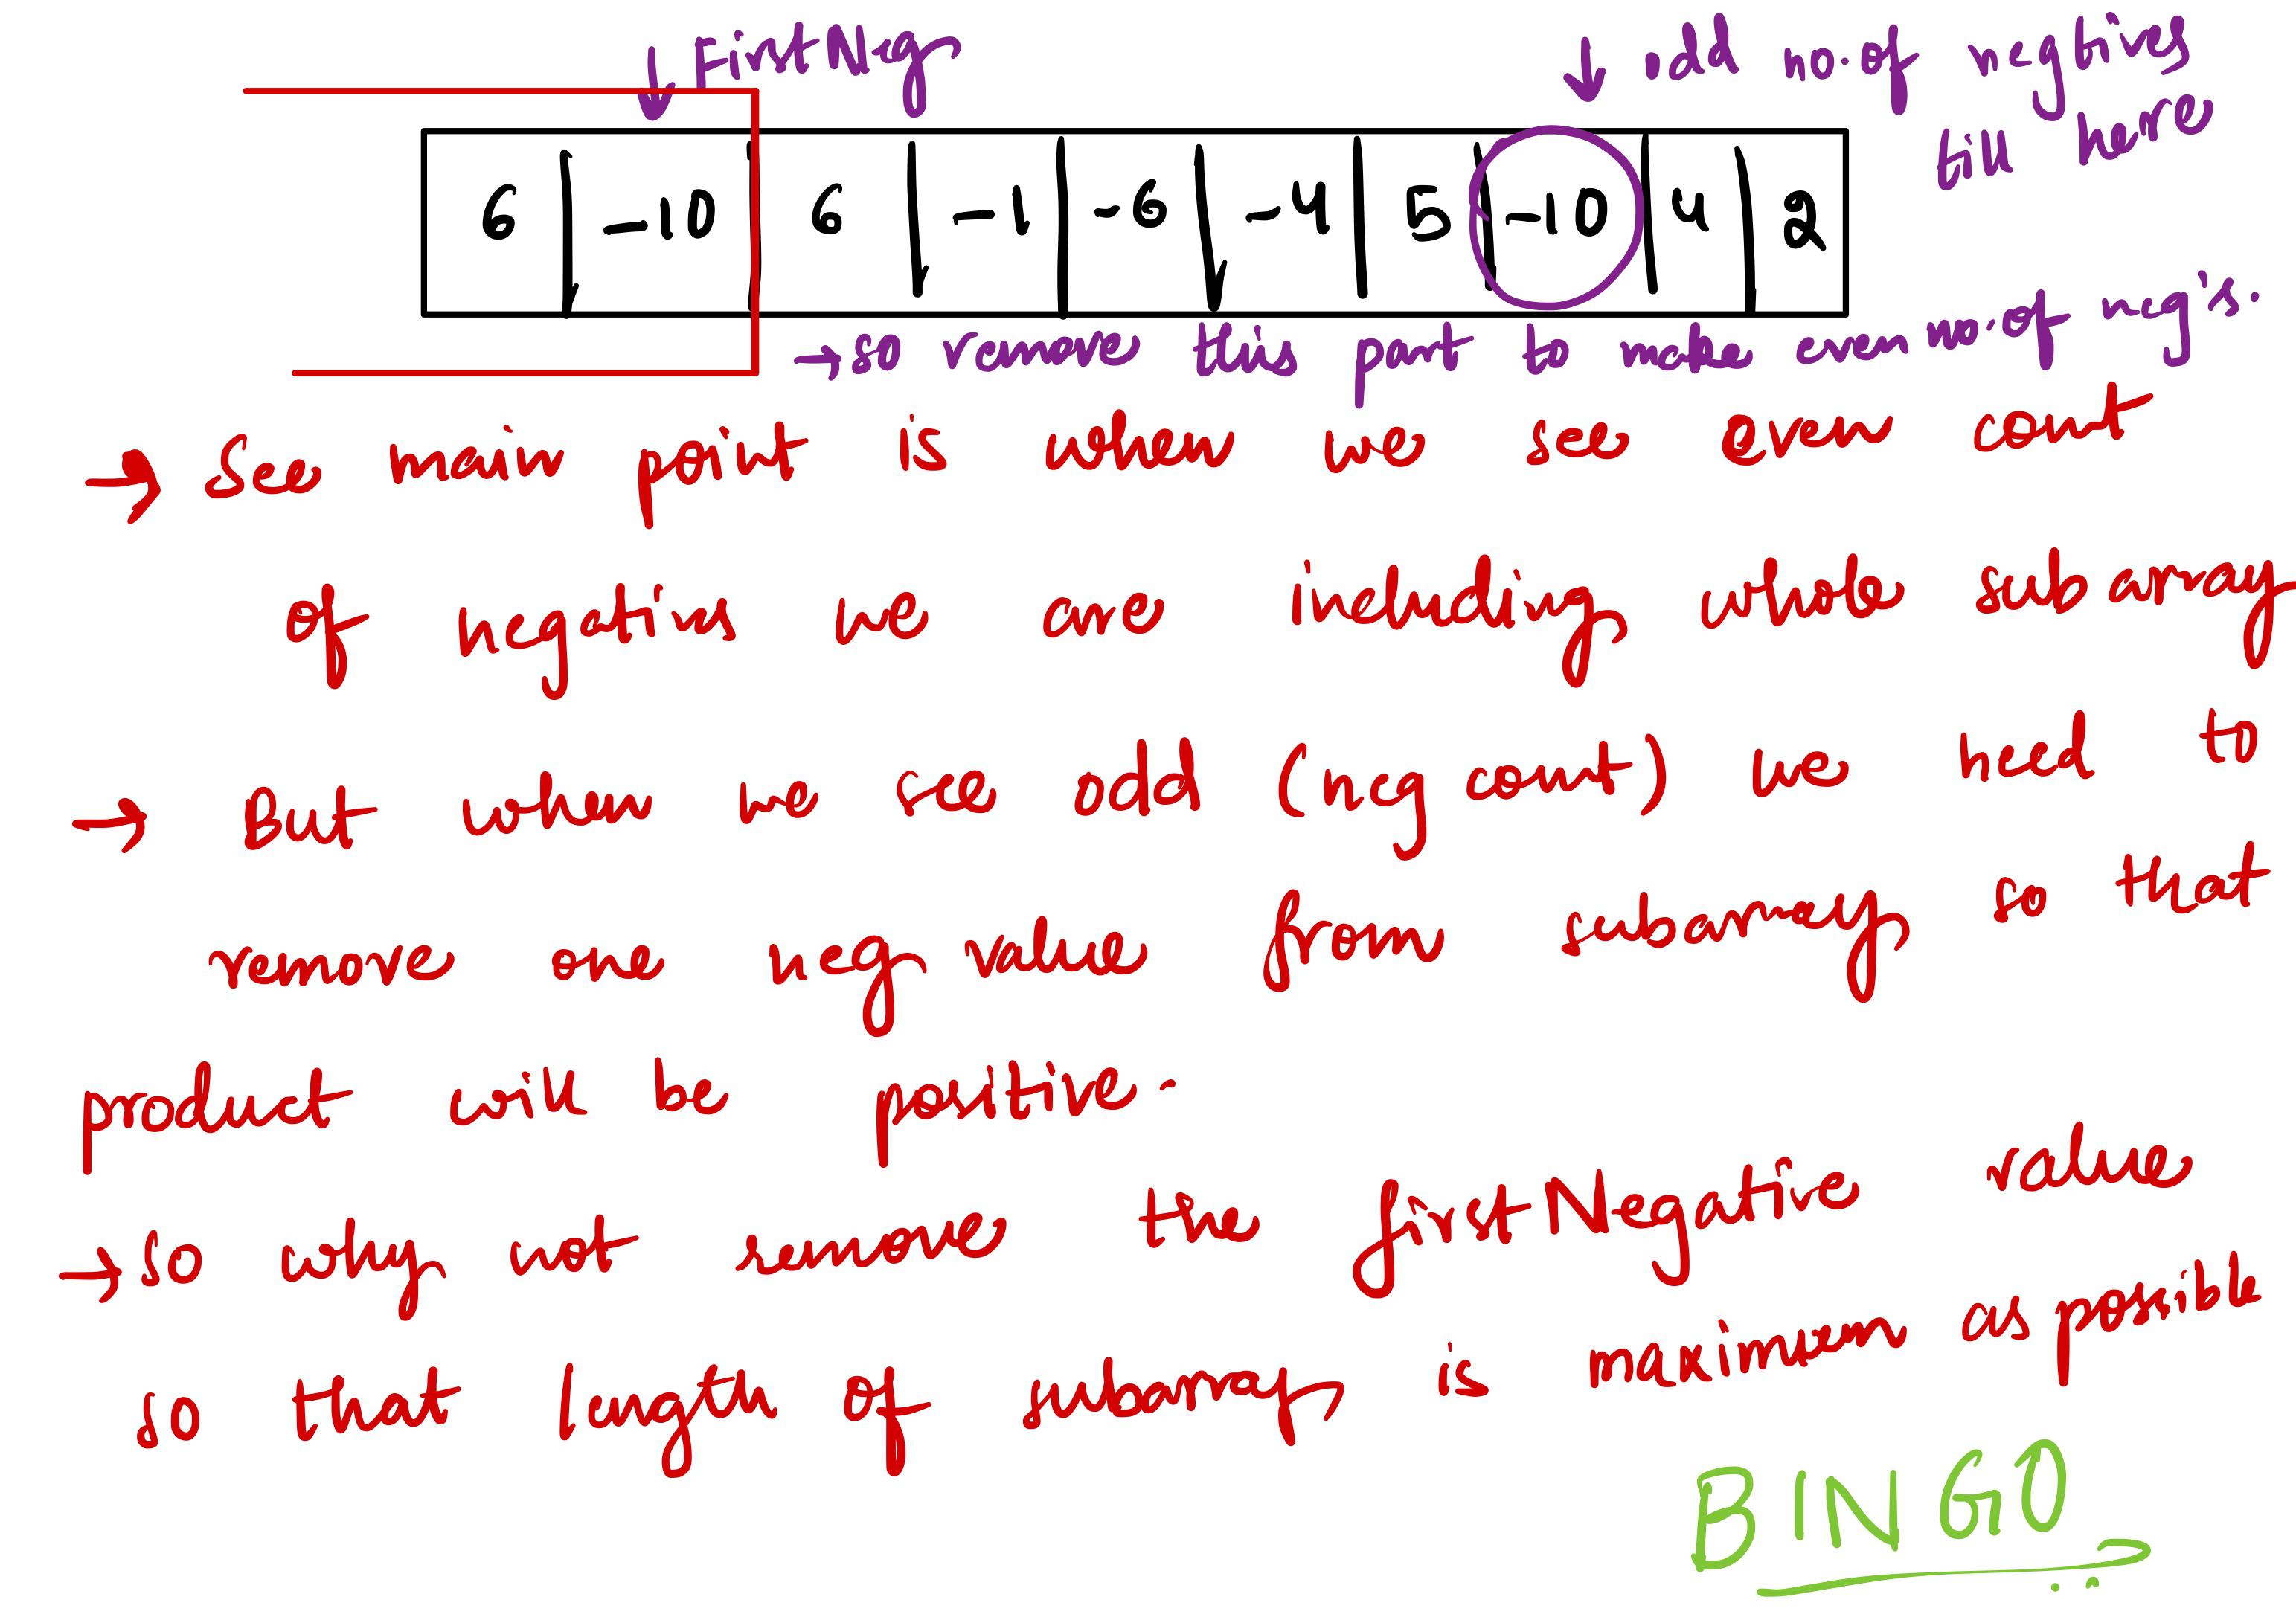 ↓ FirstNeg
↓ odd no. of negtives
till here
6 | -10 | 6 | -1 | -6 | -4 | 5 | -10 | 4 | 2
→ so remove this part to make even no. of neg's.
→ See main point is when we see even count
of negatives we are including whole subarray
→ But when we see odd (neg count) we need to
remove one neg value from subarray, so that
product will be positive.
→ so why not remove the firstNegative value
so that length of subarray is maximum as possible
BINGO